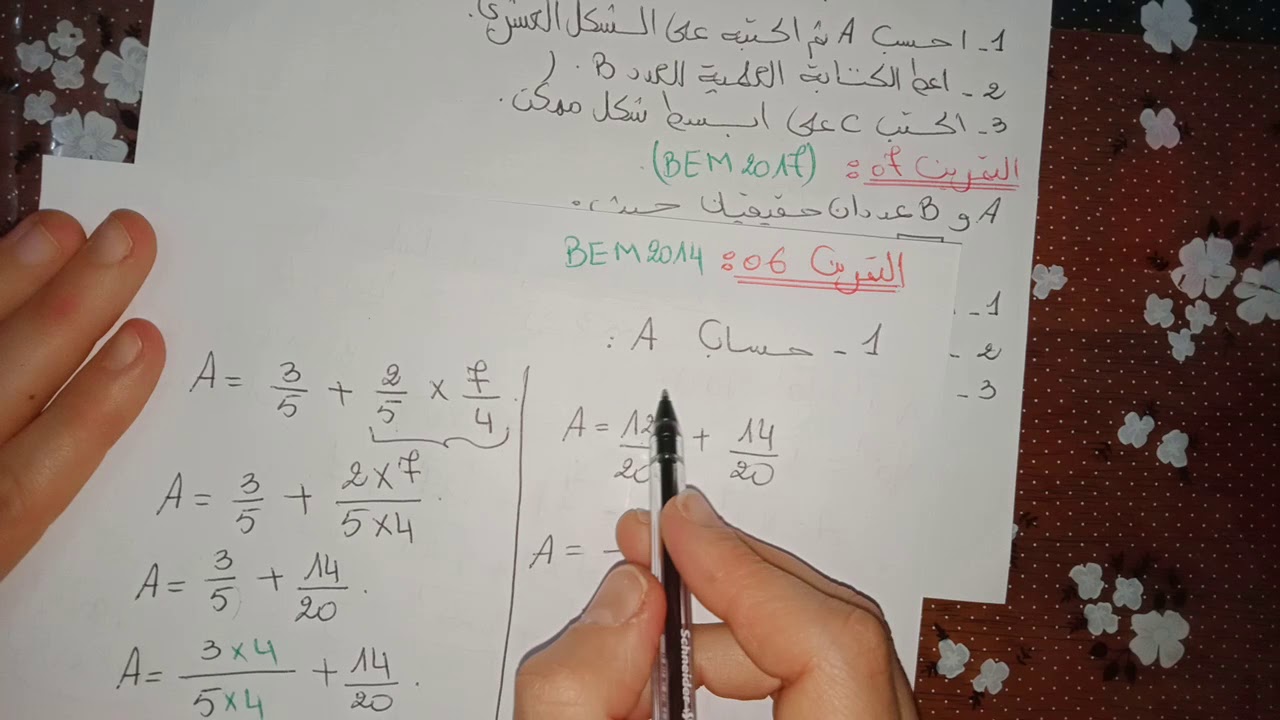 1- احسب A ثم اكتبه على الشكل العشري.
2- اعط الكتابة العلمية للعدد B.
3- اكتب C على ابسط شكل ممكن.
التمرين 07: (BEM 2017).
A و B عددان حقيقيان حيث:
التمرين 06: BEM 2014
1-
1- حساب A:
2-
3-
A = 3/5 + 2/5 × 7/4.
A = 3/5 + (2×7)/(5×4).
A = 3/5 + 14/20.
A = (3×4)/(5×4) + 14/20.
A = 12/20 + 14/20
A =
Schneider